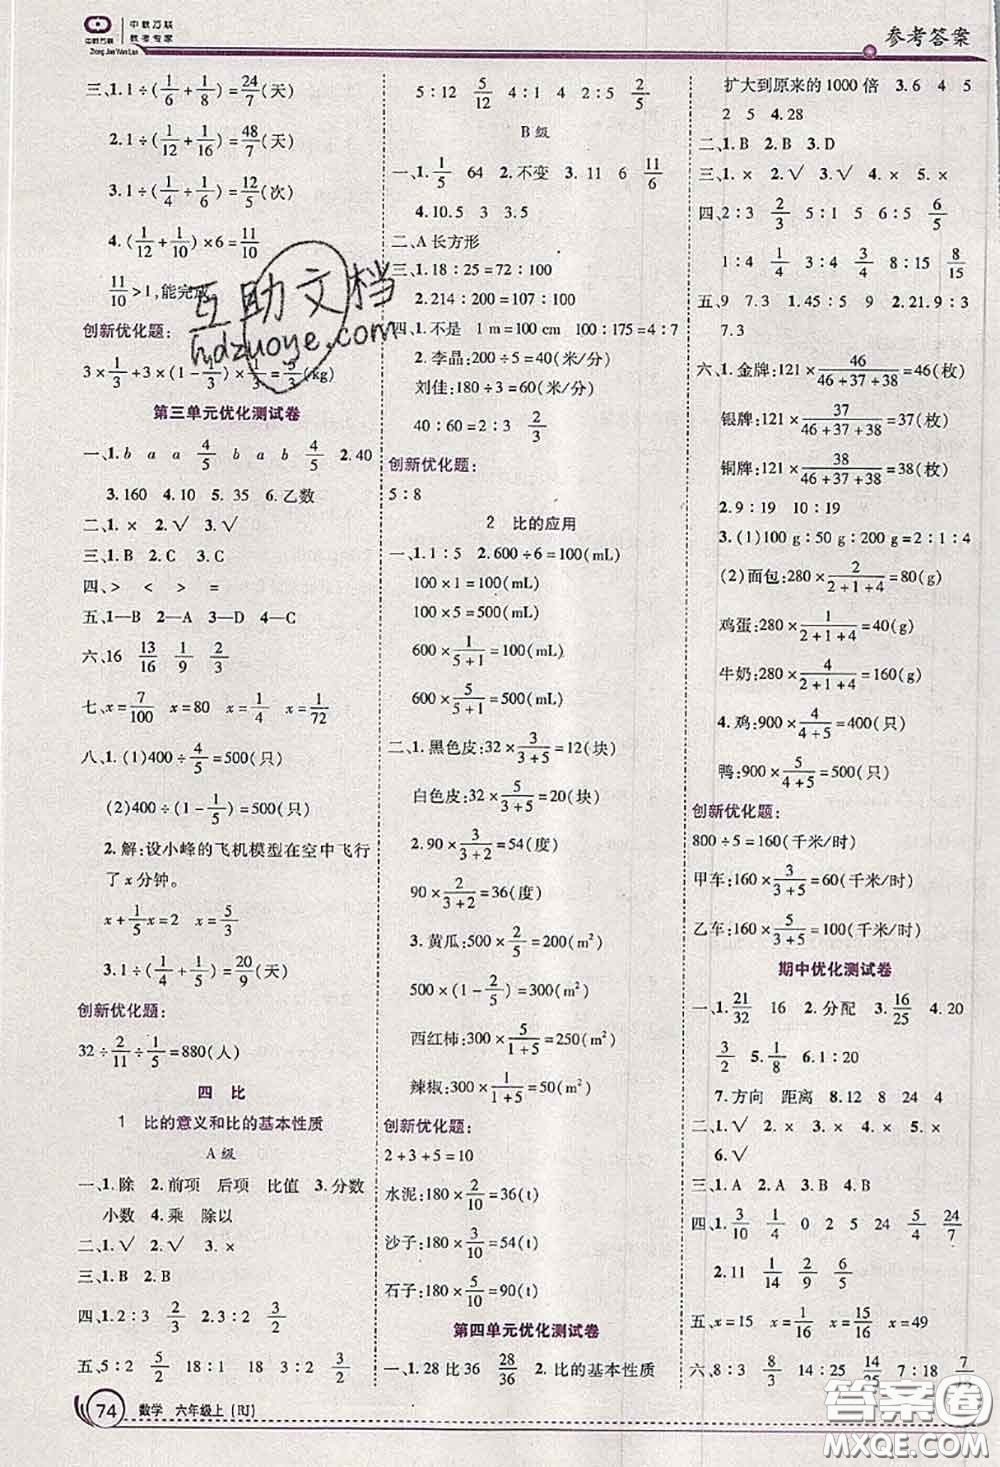 中教万联
中教万联
教考专家
Zhong Jiao Wan Lian
参考答案
三、1. 1÷(1/6+1/8)=24/7(天)
2. 1÷(1/12+1/16)=48/7(天)
3. 1÷(1/4+1/6)=12/5(次)
4. (1/12+1/10)×6=11/10
11/10>1,能完成
创新优化题:
3×1/3+3×(1-1/3)×1/3=5/3(kg)
第三单元优化测试卷
一、1. b a a 4/5 b a b 4/5 2. 40
3. 160 4. 10 5. 35 6. 乙数
二、1. × 2. √ 3. √
三、1. B 2. C 3. C
四、> < > =
五、1—B 2—A 3—D 4—C
六、16 13/16 1/9 2/3
七、x=7/100 x=80 x=1/4 x=1/72
八、1. (1)400÷4/5=500(只)
(2)400÷(1-1/5)=500(只)
2. 解:设小峰的飞机模型在空中飞行
了x分钟。
x+1/5x=2 x=5/3
3. 1÷(1/4+1/5)=20/9(天)
创新优化题:
32÷2/11÷1/5=880(人)
四 比
1 比的意义和比的基本性质
A 级
一、1. 除 2. 前项 后项 比值 3. 分数
小数 4. 乘 除以
二、1. √ 2. √ 3. ×
三、1. B 2. B
四、1. 2:3 2/3 2. 3:2 3/2
五、5:2 5/2 18:1 18 3:2 3/2
5:12 5/12 4:1 4 2:5 2/5
B 级
一、1. 1/5 64 2. 不变 3. 11 6 11/6
4. 10.5 3 3.5
二、A 长方形
三、1. 18:25=72:100
2. 214:200=107:100
四、1. 不是 1 m=100 cm 100:175=4:7
2. 李晶:200÷5=40(米/分)
刘佳:180÷3=60(米/分)
40:60=2:3 2/3
创新优化题:
5:8
2 比的应用
一、1. 1:5 2. 600÷6=100(mL)
100×1=100(mL)
100×5=500(mL)
600×1/(5+1)=100(mL)
600×5/(5+1)=500(mL)
二、1. 黑色皮:32×3/(3+5)=12(块)
白色皮:32×5/(3+5)=20(块)
2. 90×3/(3+2)=54(度)
90×2/(3+2)=36(度)
3. 黄瓜:500×2/5=200(m²)
500×(1-2/5)=300(m²)
西红柿:300×5/(1+5)=250(m²)
辣椒:300×1/(1+5)=50(m²)
创新优化题:
2+3+5=10
水泥:180×2/10=36(t)
沙子:180×3/10=54(t)
石子:180×5/10=90(t)
第四单元优化测试卷
一、1. 28 比 36 28/36 2. 比的基本性质
扩大到原来的 1000 倍 3. 6 4 5
2 5 4. 28
二、1. B 2. B 3. D
三、1. × 2. √ 3. √ 4. × 5. ×
四、2:3 2/3 5:1 5 6:5 6/5
1:4 1/4 3:4 3/4 8:15 8/15
五、9 7.3 1. 45:5 9 2. 21.9:3
7.3
六、1. 金牌:121×46/(46+37+38)=46(枚)
银牌:121×37/(46+37+38)=37(枚)
铜牌:121×38/(46+37+38)=38(枚)
2. 9:19 10:19
3. (1)100 g:50 g:200 g=2:1:4
(2)面包:280×2/(2+1+4)=80(g)
鸡蛋:280×1/(2+1+4)=40(g)
牛奶:280×4/(2+1+4)=160(g)
4. 鸡:900×4/(4+5)=400(只)
鸭:900×5/(4+5)=500(只)
创新优化题:
800÷5=160(千米/时)
甲车:160×3/(3+5)=60(千米/时)
乙车:160×5/(3+5)=100(千米/时)
期中优化测试卷
一、1. 21/32 16 2. 分配 3. 16/25 4. 20
3/2 5. 1/8 6. 1:20
7. 方向 距离 8. 12 8 24 4
二、1. √ 2. × 3. × 4. × 5. ×
6. √
三、1. A 2. A 3. B 4. C
四、1. 3/10 1/4 0 2 5 24 5/4 24/7
2. 11 1/14 2/9 6/5
五、x=15 x=1/16 x=15/16 x=49
六、8:3 8/3 14:25 14/25 7:18
74 数学 六年级上(RJ)
互助文档
hdzuoye.com
答案圈
MXQE.COM